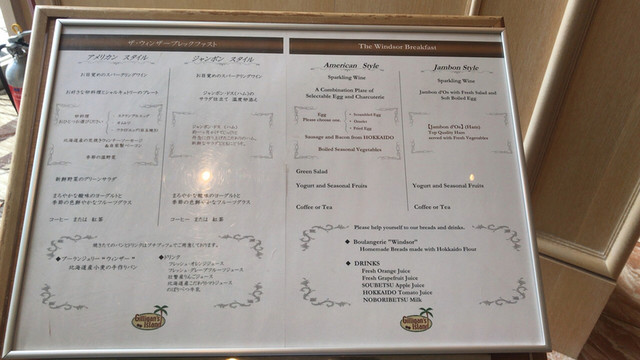 ザ・ウィンザーブレックファスト
アメリカン スタイル
お目覚めのスパークリングワイン
お好きな卵料理とシャルキュトリーのプレート
卵料理
スクランブルエッグ
オムレツ
季節の温野菜
新鮮野菜のグリーンサラダ
まろやかな酸味のヨーグルトと
季節の色鮮やかなフルーツグラス
コーヒー または 紅茶
ジャンボン スタイル
お目覚めのスパークリングワイン
まろやかな酸味のヨーグルトと
季節の色鮮やかなフルーツグラス
コーヒー または 紅茶
焼きたてのパンとドリンクはブッフェで
◆ブーランジェリー"ウィンザー"
北海道産小麦の手作りパン
◆ドリンク
フレッシュ・オレンジジュース
フレッシュ・グレープフルーツジュース
壮瞥産りんごジュース
のぼりべつ牛乳
Gilligan's
Island
The Windsor Breakfast
American Style
Sparkling Wine
A Combination Plate of
Selectable Egg and Charcuterie
Egg
Please choose one
• Scrambled Egg
• Omelet
• Fried Egg
Sausage and Bacon from HOKKAIDO
Boiled Seasonal Vegetables
Green Salad
Yogurt and Seasonal Fruits
Coffee or Tea
Jambon Style
Sparkling Wine
Jambon d'Os with Fresh Salad and
Soft Boiled Egg
【Jambon d'Os】 (Ham)
Top Quality Ham
served with Fresh Vegetables
Yogurt and Seasonal Fruits
Coffee or Tea
Please help yourself to our breads and drinks.
◆ Boulangerie "Windsor"
Homemade Breads made with Hokkaido Flour
◆ DRINKS
Fresh Orange Juice
Fresh Grapefruit Juice
SOUBETSU Apple Juice
HOKKAIDO Tomato Juice
NOBORIBETSU Milk
Gilligan's
Island